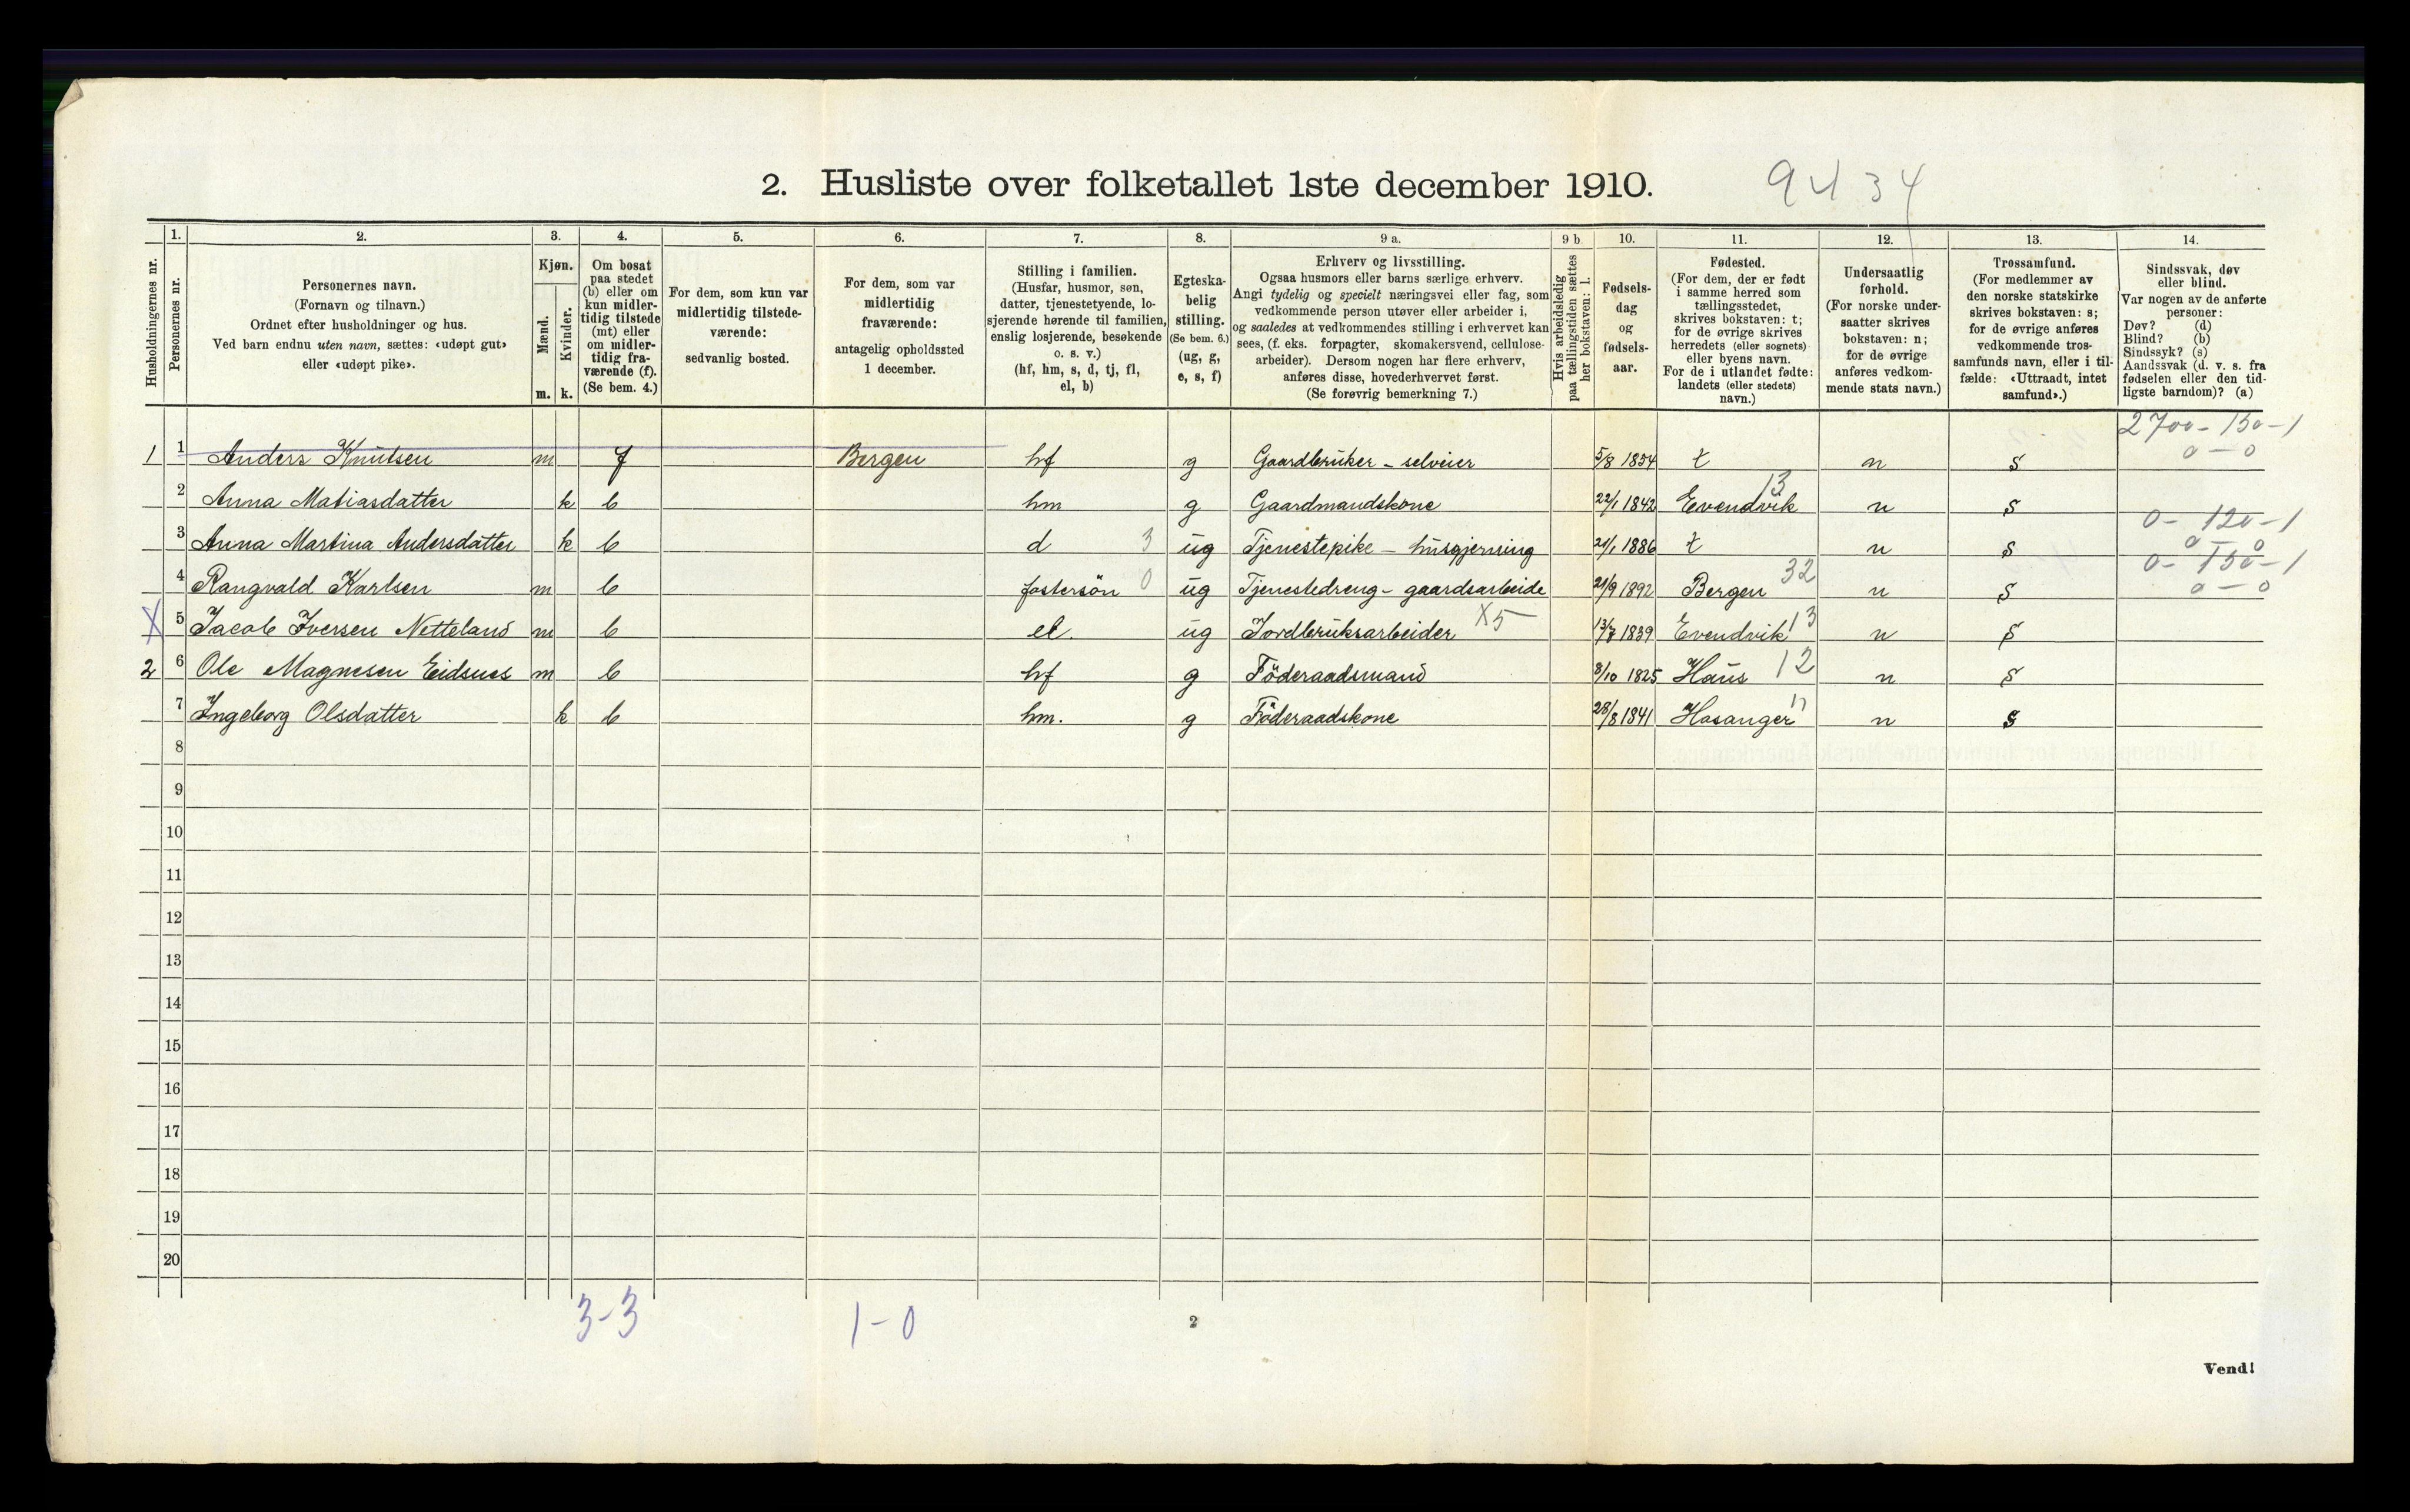 2. Husliste over folketallet 1ste december 1910.
9434
1. 2. 3. 4. 5. 6. 7. 8. 9 a. 9 b. 10. 11. 12. 13. 14.
Husholdningernes nr.
Personernes nr.
Personernes navn.
(Fornavn og tilnavn.)
Ordnet efter husholdninger og hus.
Ved barn endnu uten navn, sættes: «udøpt gut»
eller «udøpt pike».
Kjøn.
Mænd.
Kvinder.
m. k.
Om bosat
paa stedet
(b) eller om
kun midler-
tidig tilstede
(mt) eller
om midler-
tidig fra-
værende (f).
(Se bem. 4.)
For dem, som kun var
midlertidig tilstede-
værende:
sedvanlig bosted.
For dem, som var
midlertidig
fraværende:
antagelig opholdssted
1 december.
Stilling i familien.
(Husfar, husmor, søn,
datter, tjenestetyende, lo-
sjerende hørende til familien,
enslig losjerende, besøkende
o. s. v.)
(hf, hm, s, d, tj, fl,
el, b)
Egteska-
belig
stilling.
(Se bem. 6.)
(ug, g,
e, s, f)
Erhverv og livsstilling.
Ogsaa husmors eller barns særlige erhverv.
Angi tydelig og specielt næringsvei eller fag, som
vedkommende person utøver eller arbeider i,
og saaledes at vedkommendes stilling i erhvervet kan
sees, (f. eks. forpagter, skomakersvend, cellulose-
arbeider). Dersom nogen har flere erhverv,
anføres disse, hovederhvervet først.
(Se forøvrig bemerkning 7.)
Hvis arbeidsledig
paa tællingstiden sættes
her bokstaven: l.
Fødsels-
dag
og
fødsels-
aar.
Fødested.
(For dem, der er født
i samme herred som
tællingsstedet,
skrives bokstaven: t;
for de øvrige skrives
herredets (eller sognets)
eller byens navn.
For de i utlandet fødte:
landets (eller stedets)
navn.)
Undersaatlig
forhold.
(For norske under-
saatter skrives
bokstaven: n;
for de øvrige
anføres vedkom-
mende stats navn.)
Trossamfund.
(For medlemmer av
den norske statskirke
skrives bokstaven: s;
for de øvrige anføres
vedkommende tros-
samfunds navn, eller i til-
fælde: «Uttraadt, intet
samfund».)
Sindssvak, døv
eller blind.
Var nogen av de anførte
personer:
Døv? (d)
Blind? (b)
Sindssyk? (s)
Aandssvak (d. v. s. fra
fødselen eller den tid-
ligste barndom)? (a)
2700 - 150 - 1
0 - 0
1 1 Anders Knutsen m f Bergen hf g Gaardbruker - selveier 5/8 1834 t n s
2 Anna Matiasdatter k b hm g Gaardmandskone 22/1 1842 Evendvik 13 n s
0 - 120 - 1
0 - 0
3 Anna Martina Andersdatter k b d 3 ug Tjenestepike - husgjerning 21/1 1886 t n s
0 - 150 - 1
0 - 0
4 Rangvald Karlsen m b fostersön 0 ug Tjenestedreng - gaardsarbeide 21/9 1892 Bergen 32 n s
X 5 Jacob Iversen Netteland m b el. ug Jordbruksarbeider X5 13/7 1839 Evendvik 13 n s
2 6 Ole Magnesen Eidsnes m b hf g Föderaadsmand 8/10 1825 Haus 12 n s
7 Ingeborg Olsdatter k b hm. g Föderaadskone 28/8 1841 Hosanger n s
8
9
10
11
12
13
14
15
16
17
18
19
20
3-3
1-0
2
Vend!